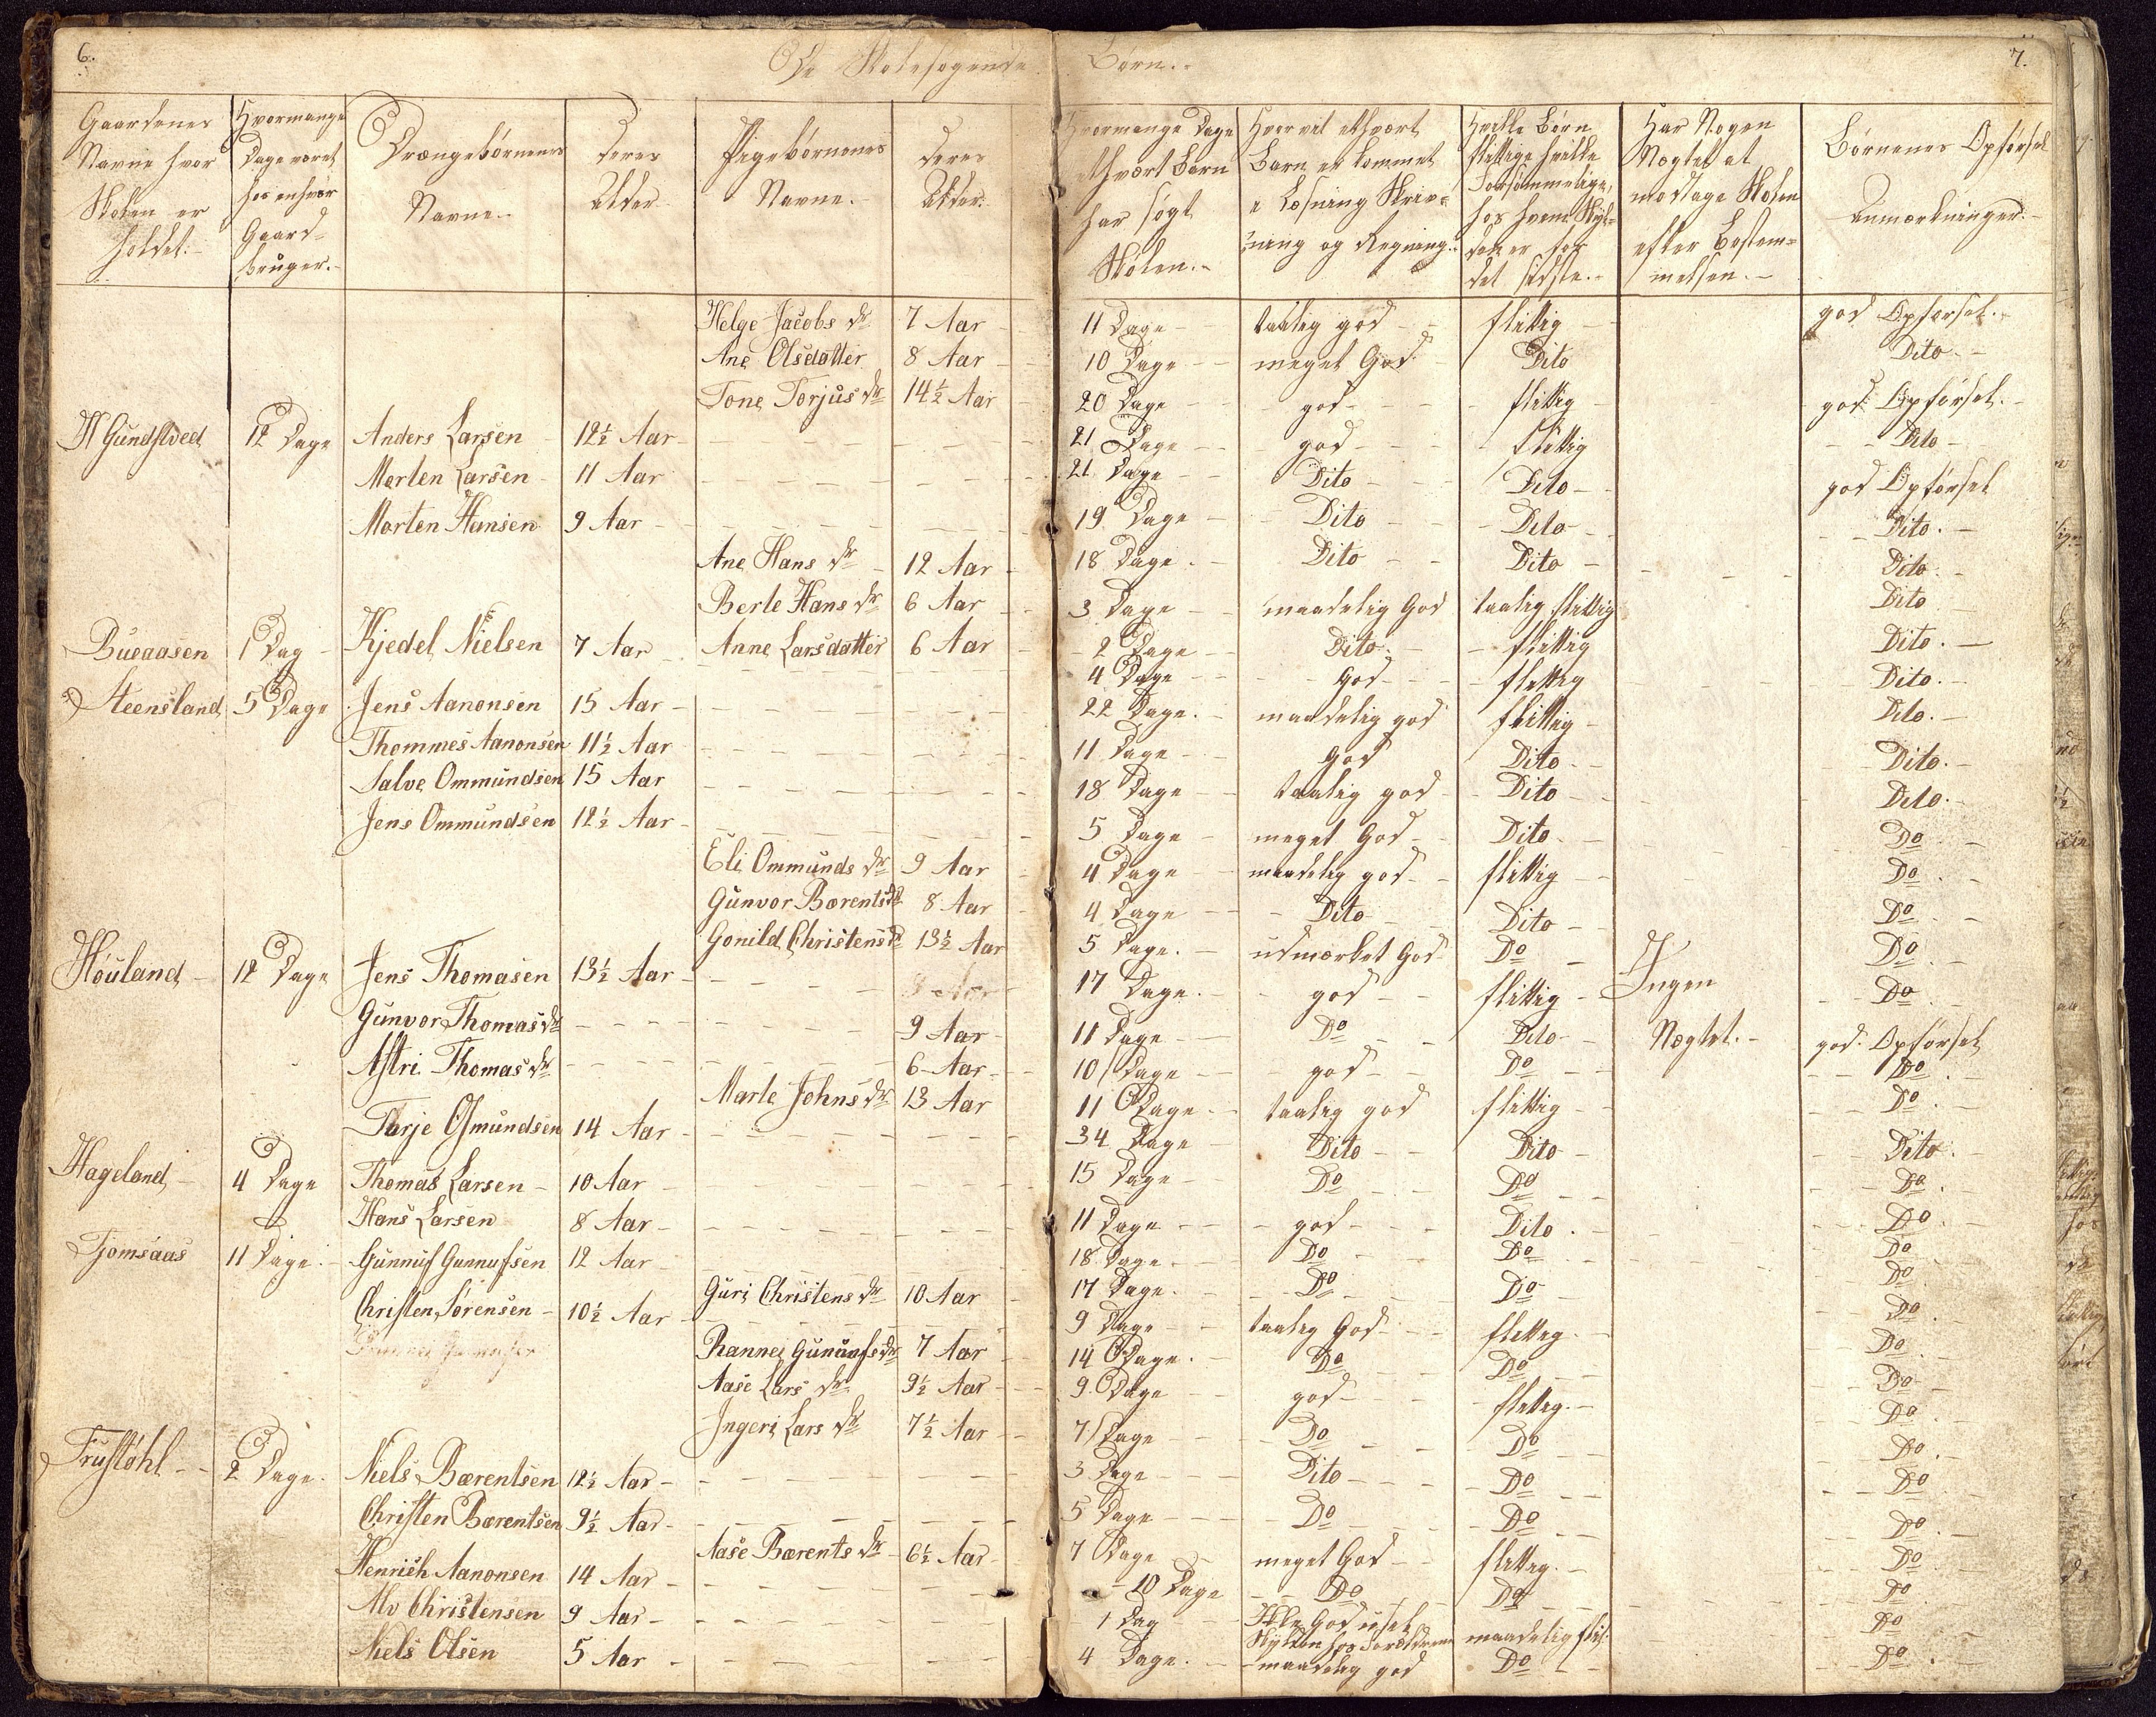 6. De Skolesøgende Børn.. 7.
Gaardenes Navne hvor Skolen er holdet.- | Hvormange Dage været hos enhver Gaard-bruger.- | Drængebørnenes Navne.- | Deres Alder | Pigebørnenes Navne.- | Deres Alder. | Hvormange Dage ethvært Barn har søgt Skolen.- | Hvor vit ethvært Barn er kommet i Læsning Skriv=ning og Regning.- | Hvilke Børn flittige hvilke Forsømmelige, hos hvem Skyl=den er for det sidste.- | Har Nogen Nægtet at modtage Skolen efter Bestem=melsen.- | Børnenes Opførsel Anmærkninger.-
Helge Jacobs dr 7 Aar 11 Dage taalig god flittig god Opførsel.
Ane Olsdatter 8 Aar 10 Dage meget God Dito Dito
Tone Torjus dr 14½ Aar 20 Dage god flittig god Opførsel.
N Gundstved 12 Dage Anders Larsen 12½ Aar 21 Dage god flittig Dito
Merten Larsen 11 Aar 21 Dage Dito Dito god Opførsel
Morten Hansen 9 Aar 19 Dage Dito Dito Dito.
Ane Hans dr 12 Aar 18 Dage. Dito Dito Dito.
Berte Hans dr 6 Aar 3 Dage maadelig God taalig flittig Dito
Bueaasen 1 Dag Kjedel Nielsen 7 Aar Anne Larsdatter 6 Aar 2 Dage Dito. flittig Dito.
4 Dage God flittig Dito.
Steensland 5 Dage Jens Aanonsen 15 Aar 22 Dage. maadelig god flittig Dito.
Thommes Aanonsen 11½ Aar 11 Dage God Dito Dito.
Salve Ommundsen 15 Aar 18 Dage taalig god Dito Dito.
Jens Ommundsen 12½ Aar 5 Dage meget God Dito Do
Eli Ommunds dr 9 Aar 4 Dage maadelig god flittig Do
Gunvor Bærents dr 8 Aar 4 Dage Dito Dito Do
Gonild Christens dr 13½ Aar 5 Dage. udmærket God Do Do
Høuland 12 Dage Jens Thomasen 13½ Aar 17 Dage. god flittig Ingen Do
Gunvor Thomas dr 9 Aar 11 Dage Do Dito Nægtet. god Opførsel
Astri Thomas dr 6 Aar 10 Dage god Do Do
Marte Johns dr 13 Aar 11 Dage taalig god flittig Do
Tarje Osmundsen 14 Aar 34 Dage Dito Dito Dito
Hageland 4 Dage Thomas Larsen 10 Aar 15 Dage Do Do Do
Hans Larsen 8 Aar 11 Dage god Dito. Do
Tjomsaas 11 Dage. Gunnuf Gunnufsen 12 Aar 18 Dage. Do Do Do
Guri Christens dr 10 Aar 17 Dage. Do Do Do
Christen Sørensen 10½ Aar 9 Dage taalig God flittig. Do
Rannei Gunnufs dr 7 Aar 14 Dage. Do Do Do
Aase Lars dr 9½ Aar 9 Dage god flittig. Do
Ingeri Lars dr 7½ Aar 7 Dage Do Do Do
Frustøhl 2 Dage. Niels Bærentsen 12½ Aar 3 Dage Dito Do Do
Christen Bærentsen 9½ Aar 5 Dage Do Do Do
Aase Bærents dr 6½ Aar 7 Dage meget God flittig. Do
Henrich Aanonsen 14 Aar 10 Dage Do Do Do
Alv Christensen 9 Aar 1 Dag Ikke God Skylden hos Forældrene maadelig flit: Do
Niels Olsen 5 Aar 4 Dage. maadelig god Do Do